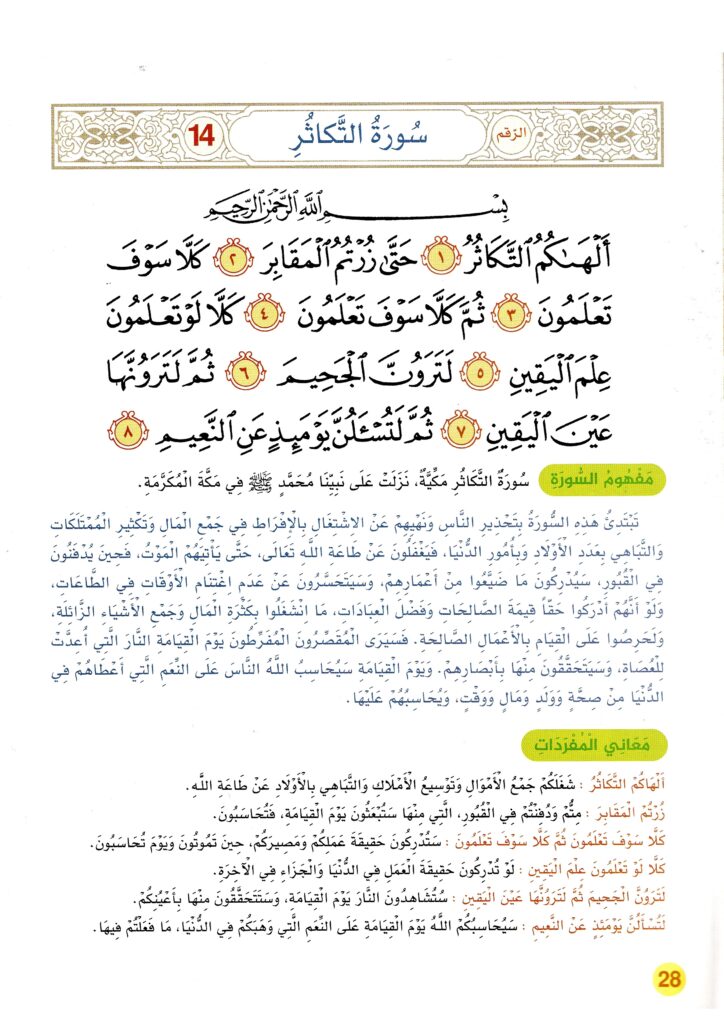 الرّقم سُورَةُ التَّكاثُرِ 14
بِسْمِ ٱللَّهِ ٱلرَّحْمَٰنِ ٱلرَّحِيمِ
أَلْهَىٰكُمُ ٱلتَّكَاثُرُ ١ حَتَّىٰ زُرْتُمُ ٱلْمَقَابِرَ ٢ كَلَّا سَوْفَ
تَعْلَمُونَ ٣ ثُمَّ كَلَّا سَوْفَ تَعْلَمُونَ ٤ كَلَّا لَوْ تَعْلَمُونَ
عِلْمَ ٱلْيَقِينِ ٥ لَتَرَوُنَّ ٱلْجَحِيمَ ٦ ثُمَّ لَتَرَوُنَّهَا
عَيْنَ ٱلْيَقِينِ ٧ ثُمَّ لَتُسْـَٔلُنَّ يَوْمَئِذٍ عَنِ ٱلنَّعِيمِ ٨
مَفْهُومُ السُّورَةِ سُورَةُ التَّكاثُرِ مَكِّيَّةٌ، نَزَلَتْ عَلَى نَبِيِّنَا مُحَمَّدٍ ﷺ فِي مَكَّةَ المُكَرَّمَةِ.
تَبْتَدِئُ هَذِهِ السُّورَةُ بِتَحْذِيرِ النَّاسِ وَنَهْيِهِمْ عَنْ الاشْتِغَالِ بِالإِفْرَاطِ في جَمْعِ المَالِ وَتَكْثِيرِ المُمْتَلَكَاتِ
وَالتَّبَاهِي بِعَدَدِ الأَوْلَادِ وَبِأُمُورِ الدُّنْيَا، فَيَغْفُلُونَ عَنْ طَاعَةِ اللَّهِ تَعَالَى، حَتَّى يَأْتِيَهُمُ المَوْتُ، فَحِينَ يُدْفَنُونَ
فِي القُبُورِ، سَيُدْرِكُونَ مَا ضَيَّعُوا مِنْ أَعْمَارِهِمْ، وَسَيَتَحَسَّرُونَ عَنْ عَدَمِ اغْتِنَامِ الأَوْقَاتِ فِي الطَّاعَاتِ،
وَلَوْ أَنَّهُمْ أَدْرَكُوا حَقّاً قِيمَةَ الصَّالِحَاتِ وَفَضْلَ العِبَادَاتِ، مَا انْشَغَلُوا بِكَثْرَةِ المَالِ وَجَمْعِ الأَشْيَاءِ الزَّائِلَةِ،
وَلَحَرِصُوا عَلَى القِيَامِ بِالأَعْمَالِ الصَّالِحَةِ. فَسَيَرَى المُقَصِّرُونَ المُفَرِّطُونَ يَوْمَ القِيَامَةِ النَّارَ الَّتِي أُعِدَّتْ
لِلْعُصَاةِ، وَسَيَتَحَقَّقُونَ مِنْهَا بِأَبْصَارِهِمْ. وَيَوْمَ القِيَامَةِ سَيُحَاسِبُ اللَّهُ النَّاسَ عَلَى النِّعَمِ الَّتِي أَعْطَاهُمْ فِي
الدُّنْيَا مِنْ صِحَّةٍ وَوَلَدٍ وَمَالٍ وَوَقْتٍ، وَيُحَاسِبُهُمْ عَلَيْهَا.
مَعَانِي المُفْرَدَاتِ
أَلْهَاكُمُ التَّكَاثُرُ : شَغَلَكُمْ جَمْعُ الأَمْوَالِ وَتَوْسِيعُ الأَمْلَاكِ وَالتَّبَاهِي بِالأَوْلَادِ عَنْ طَاعَةِ اللَّهِ.
زُرْتُمُ المَقَابِرَ : مِتُّمْ وَدُفِنْتُمْ فِي القُبُورِ، الَّتِي مِنْهَا سَتُبْعَثُونَ يَوْمَ القِيَامَةِ، فَتُحَاسَبُونَ.
كَلَّا سَوْفَ تَعْلَمُونَ ثُمَّ كَلَّا سَوْفَ تَعْلَمُونَ : سَتُدْرِكُونَ حَقِيقَةَ عَمَلِكُمْ وَمَصِيرَكُمْ، حِينَ تَمُوتُونَ وَيَوْمَ تُحَاسَبُونَ.
كَلَّا لَوْ تَعْلَمُونَ عِلْمَ اليَقِينِ : لَوْ تُدْرِكُونَ حَقِيقَةَ العَمَلِ فِي الدُّنْيَا وَالجَزَاءِ فِي الآخِرَةِ.
لَتَرَوُنَّ الجَحِيمَ ثُمَّ لَتَرَوُنَّهَا عَيْنَ اليَقِينِ : سَتُشَاهِدُونَ النَّارَ يَوْمَ القِيَامَةِ، وَسَتَتَحَقَّقُونَ مِنْهَا بِأَعْيُنِكُمْ.
لَتُسْأَلُنَّ يَوْمَئِذٍ عَنْ النَّعِيمِ : سَيُحَاسِبُكُمْ اللَّهُ يَوْمَ القِيَامَةِ عَلَى النِّعَمِ الَّتِي وَهَبَكُمْ فِي الدُّنْيَا، مَا فَعَلْتُمْ فِيهَا.
28